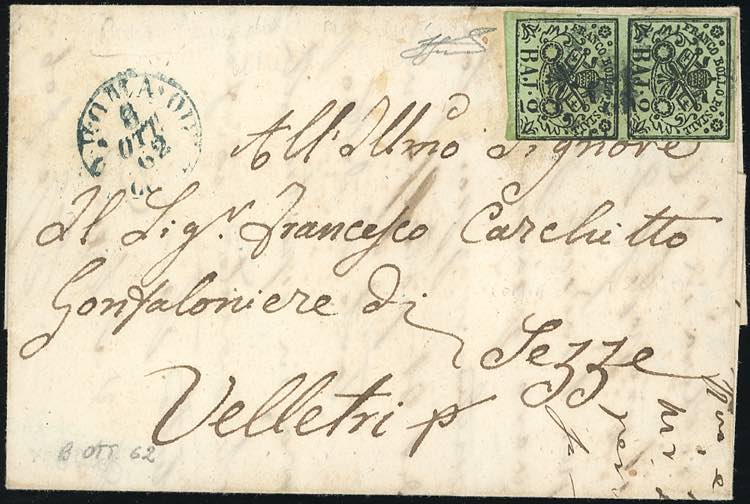 FRANCO BOLLO POSTALE
BAJ. 2
FRANCO BOLLO POSTALE
BAJ. 2
ROMA
8
OTT
62
All'Illmo Signore
Il Sigr. Francesco Carchitto
Gonfaloniere di
Sezze
Velletri p
8 OTT. 62